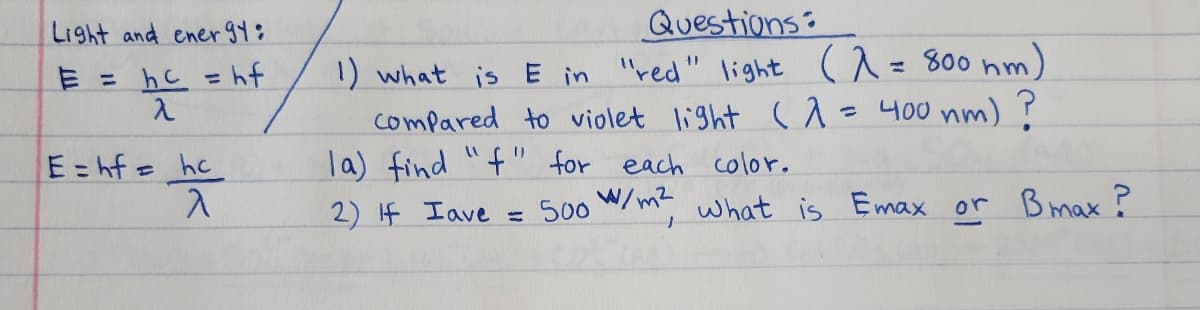 Light and energy:
E = hc/λ = hf
E = hf = hc/λ
Questions:
1) what is E in "red" light (λ = 800 nm)
compared to violet light (λ = 400 nm) ?
1a) find "f" for each color.
2) If Iave = 500 W/m², what is Emax or Bmax ?